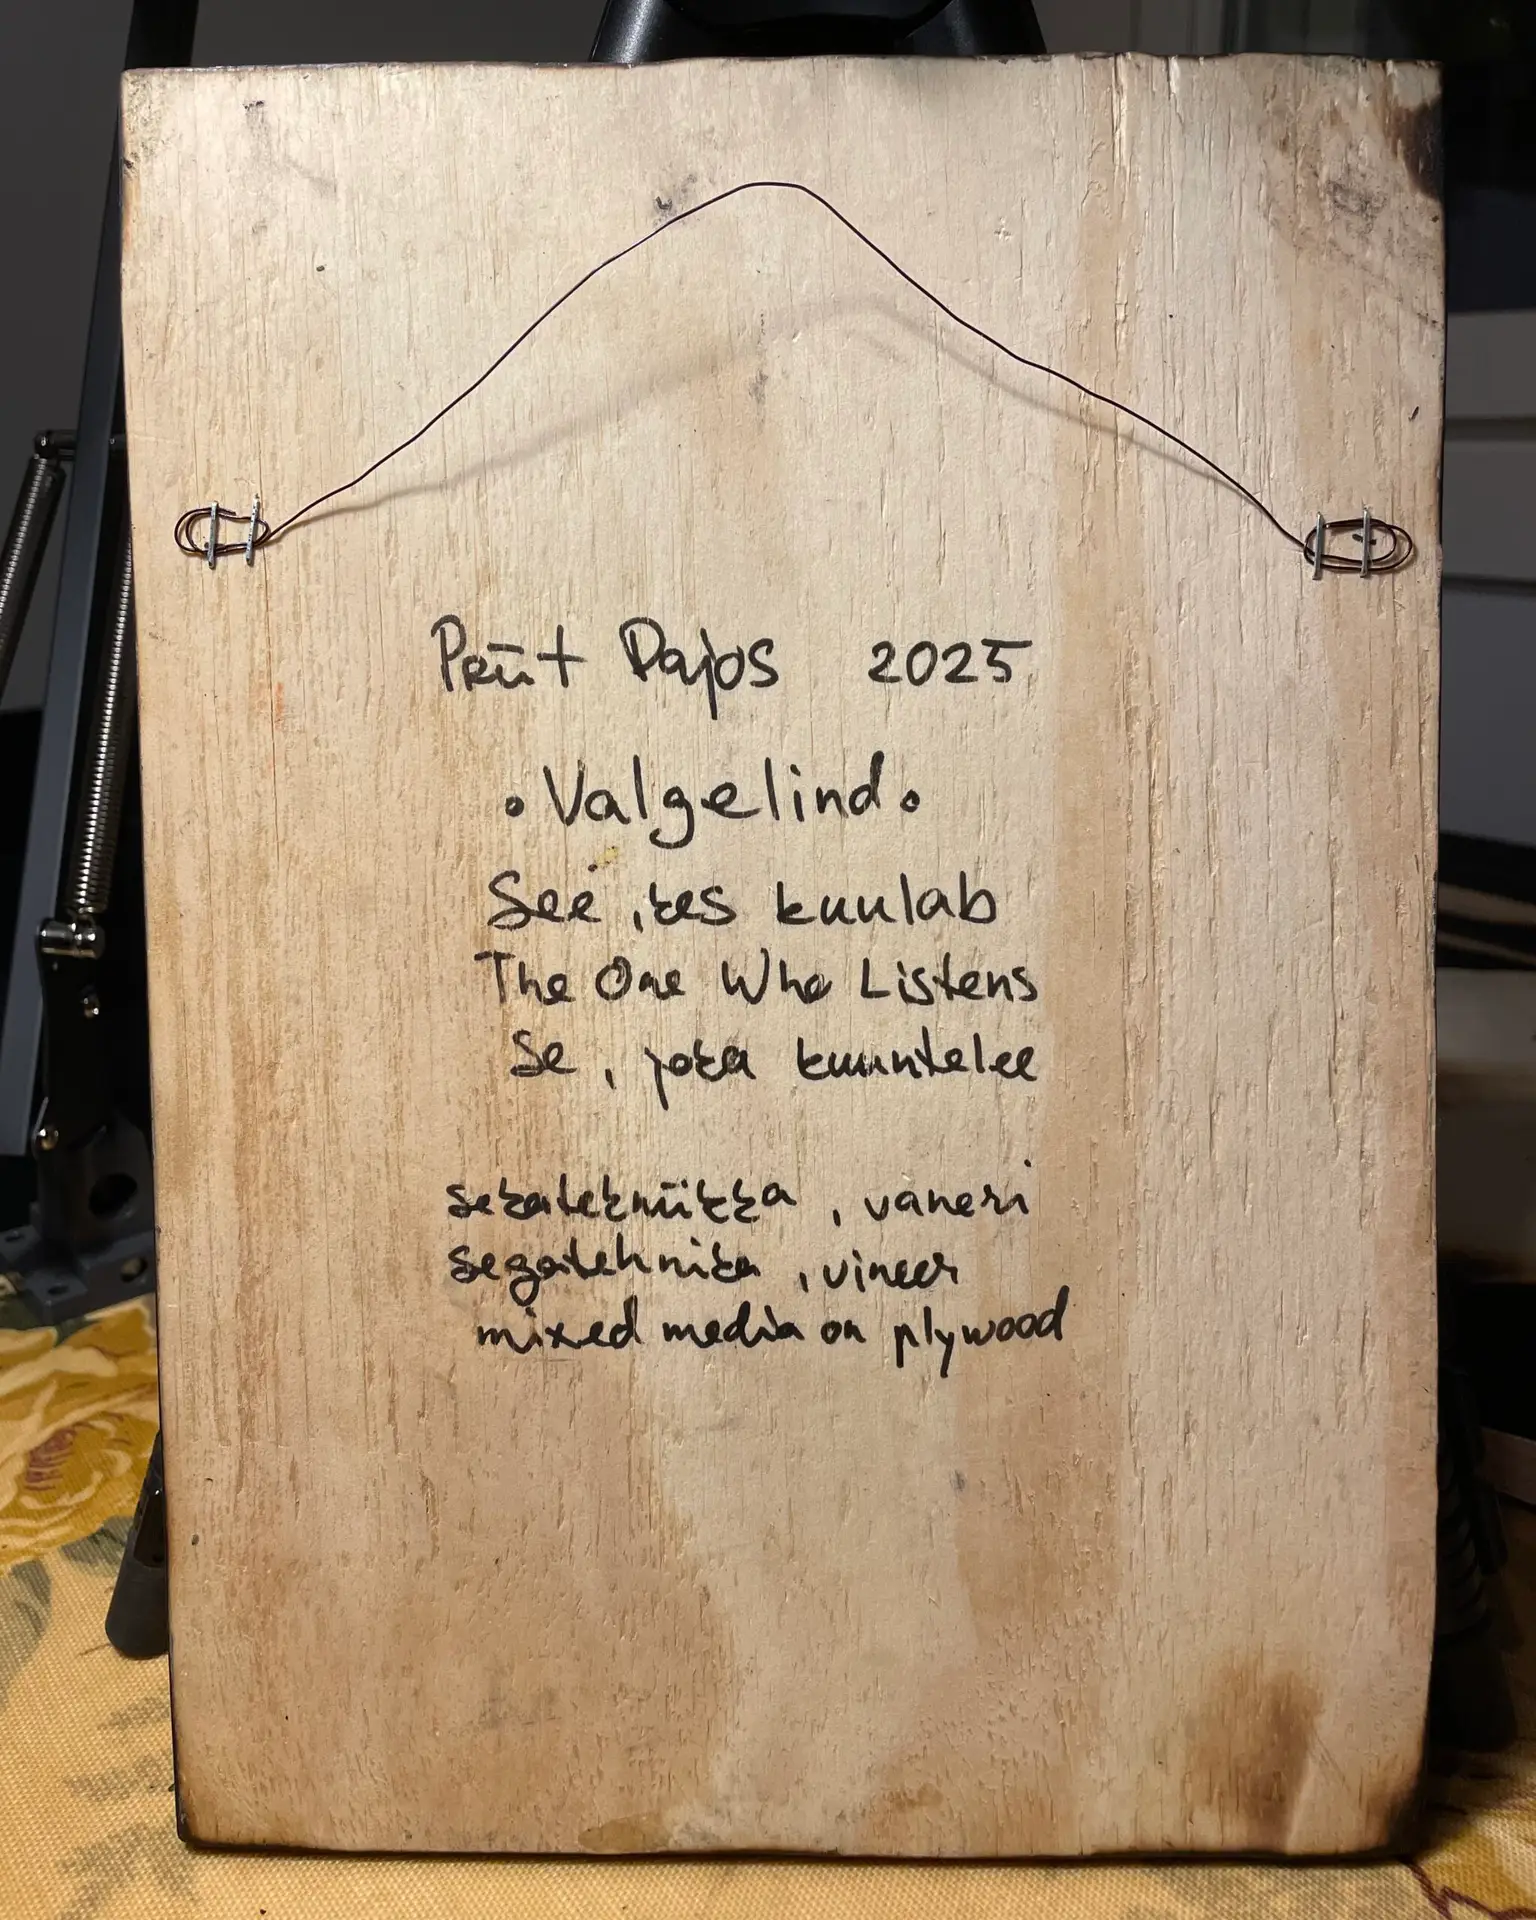 Priit Pajos 2025
•Valgelind•
See, kes kuulab
The One Who Listens
Se, joka kuuntelee
sekatekniikka, vaneri
segatehnika, vineer
mixed media on plywood